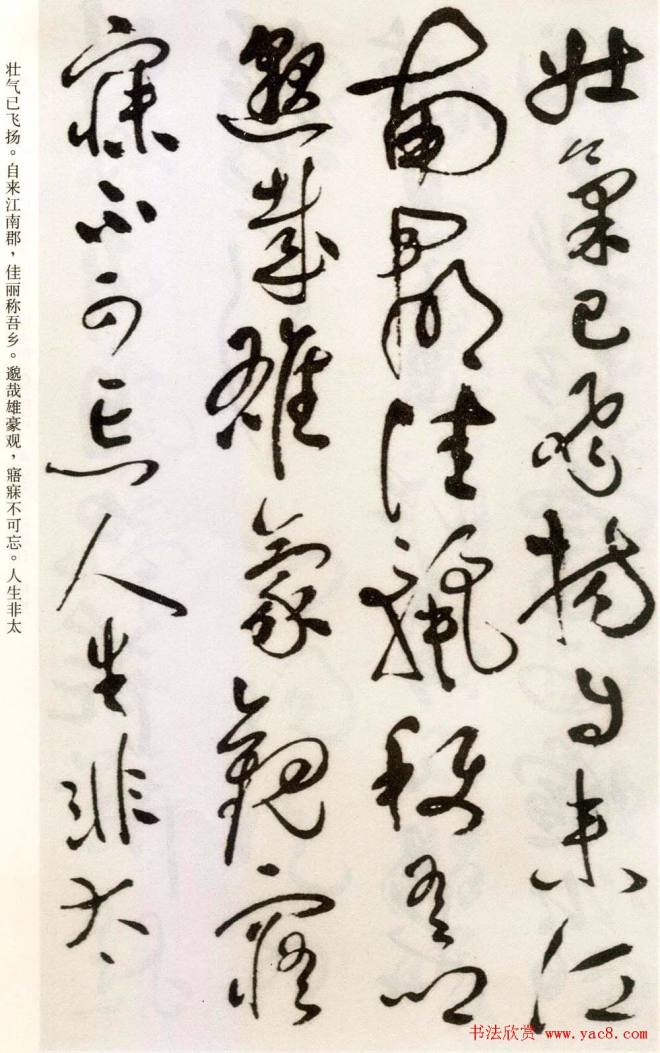 壯氣已飛揚自來江
南郡佳麗稱吾鄉
邈哉雄豪觀寤
寐不可忘人生非太
壮气已飞扬。自来江南郡，佳丽称吾乡。邈哉雄豪观，寤寐不可忘。人生非太
书法欣赏 www.yac8.com